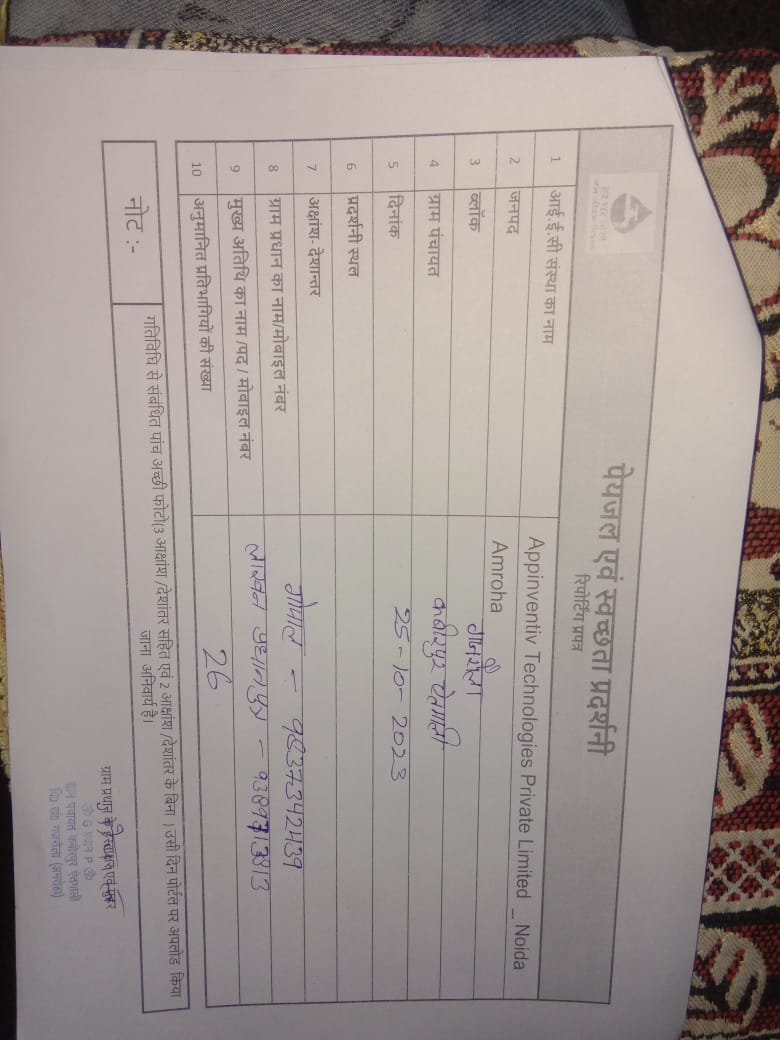 पेयजल एवं स्वच्छता प्रदर्शनी
रिपोर्टिंग प्रपत्र
1 आई.ई.सी संस्था का नाम Appinventiv Technologies Private Limited _ Noida
2 जनपद Amroha
3 ब्लॉक गजरौला
4 ग्राम पंचायत कबीरपुर
5 दिनांक 25-10-2023
6 प्रदर्शनी स्थल
7 अक्षांश- देशान्तर
8 ग्राम प्रधान का नाम/मोबाइल नंबर गोपाल -
9 मुख्य अतिथि का नाम /पद / मोबाइल नंबर
10 अनुमानित प्रतिभागियों की संख्या 26
नोट :- गतिविधि से संबंधित पांच अच्छी फोटो(3 आक्षांश /देशांतर सहित एवं 2 आक्षांश /देशांतर के बिना ) उसी दिन पोर्टल पर अपलोड किया
जाना अनिवार्य है।
ग्राम प्रधान के हस्ताक्षर एवं मुहर